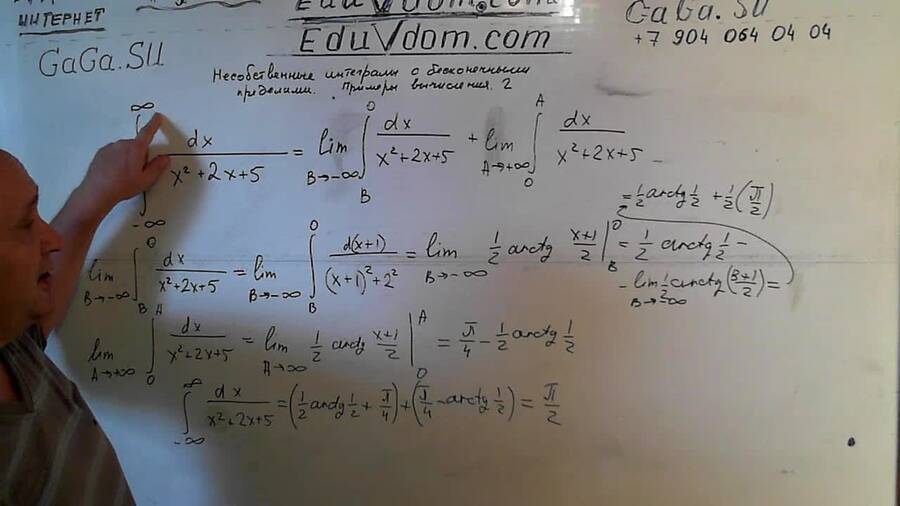 ИНТЕРНЕТ
EduVdom.com
EduVdom.com
GaGa.SU
+7 904 064 04 04
GaGa.SU
Несобственные интегралы с бесконечными
пределами. Примеры вычисления. 2
∫_{-∞}^{∞} dx/(x²+2x+5) = lim_{B→-∞} ∫_B^0 dx/(x²+2x+5) + lim_{A→+∞} ∫_0^A dx/(x²+2x+5)
= 1/2 arctg 1/2 + 1/2 (π/2)
lim_{B→-∞} ∫_B^0 dx/(x²+2x+5) = lim_{B→-∞} ∫_B^0 d(x+1)/((x+1)²+2²) = lim_{B→-∞} 1/2 arctg (x+1)/2 |_B^0 = 1/2 arctg 1/2 -
- lim_{B→-∞} 1/2 arctg (B+1)/2) =
lim_{A→+∞} ∫_0^A dx/(x²+2x+5) = lim_{A→∞} 1/2 arctg (x+1)/2 |_0^A = π/4 - 1/2 arctg 1/2
∫_{-∞}^{∞} dx/(x²+2x+5) = (1/2 arctg 1/2 + π/4) + (π/4 - arctg 1/2) = π/2